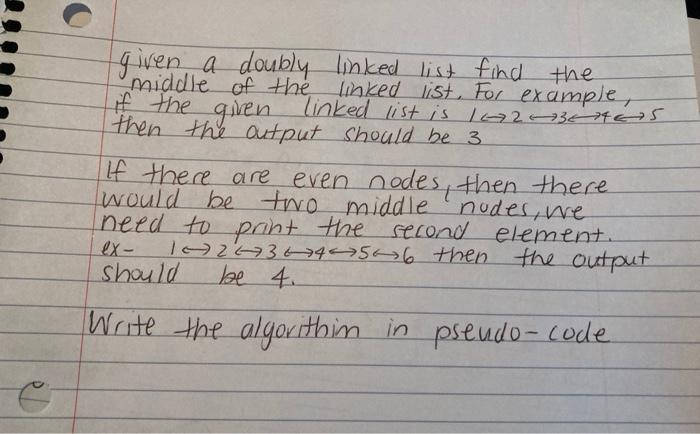 given a doubly linked list find the
middle of the linked list. For example,
if the given linked list is 1↔2↔3↔4↔5
then the output should be 3
If there are even nodes, then there
would be two middle nodes, we
need to print the second element.
ex- 1↔2↔3↔4↔5↔6 then the output
should be 4.
Write the algorithim in pseudo-code